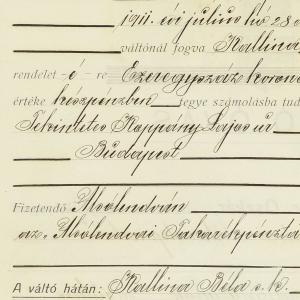 1911. évi julius hó 28
váltónál fogva Kallina
rendelet -é- re Ezeregyszáz korona
értéke készpénzben tegye számolásba tud
Tekintetes Kappány Lajos úr
Budapest
Fizetendő Alsólendván
az „Alsólendvai Takarékpénztá
A váltó hátán: Kallina Béla s. k.